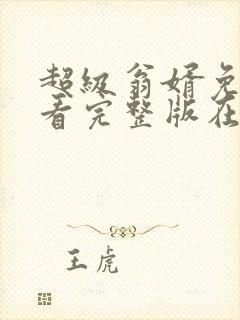 超级翁婿免
看完整版在
王虎